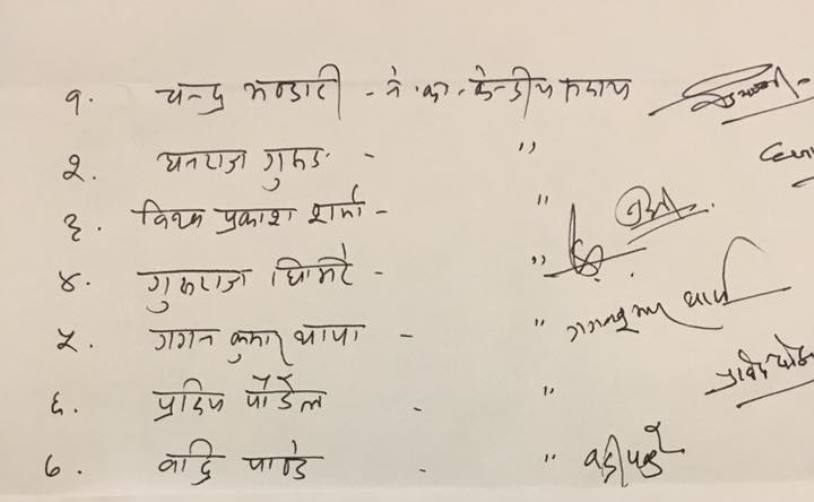 १. चन्द्र भण्डारी - ने.का. केन्द्रीय सदस्य
२. धनराज गुरुङ - "
३. विश्व प्रकाश शर्मा - "
४. गुरुराज घिमिरे - "
५. गगन कुमार थापा - " गगनकुमार थापा
६. प्रदिप पौडेल - "
७. बद्रि पाण्डे - " बद्री पाण्डे